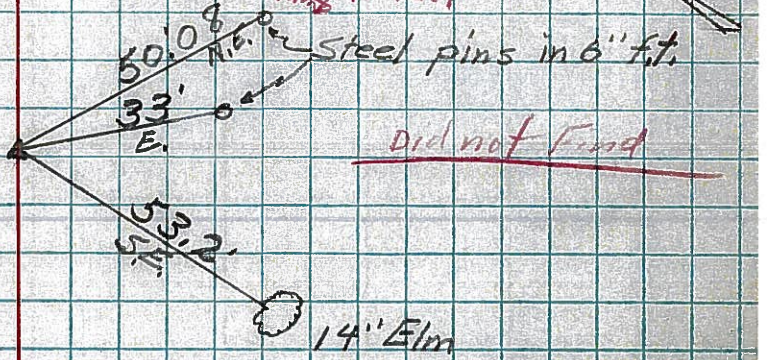 50.08'
N.E.
Steel pins in 6" f.t.
33'
E.
Did not Find
53.2'
S.E.
14" Elm